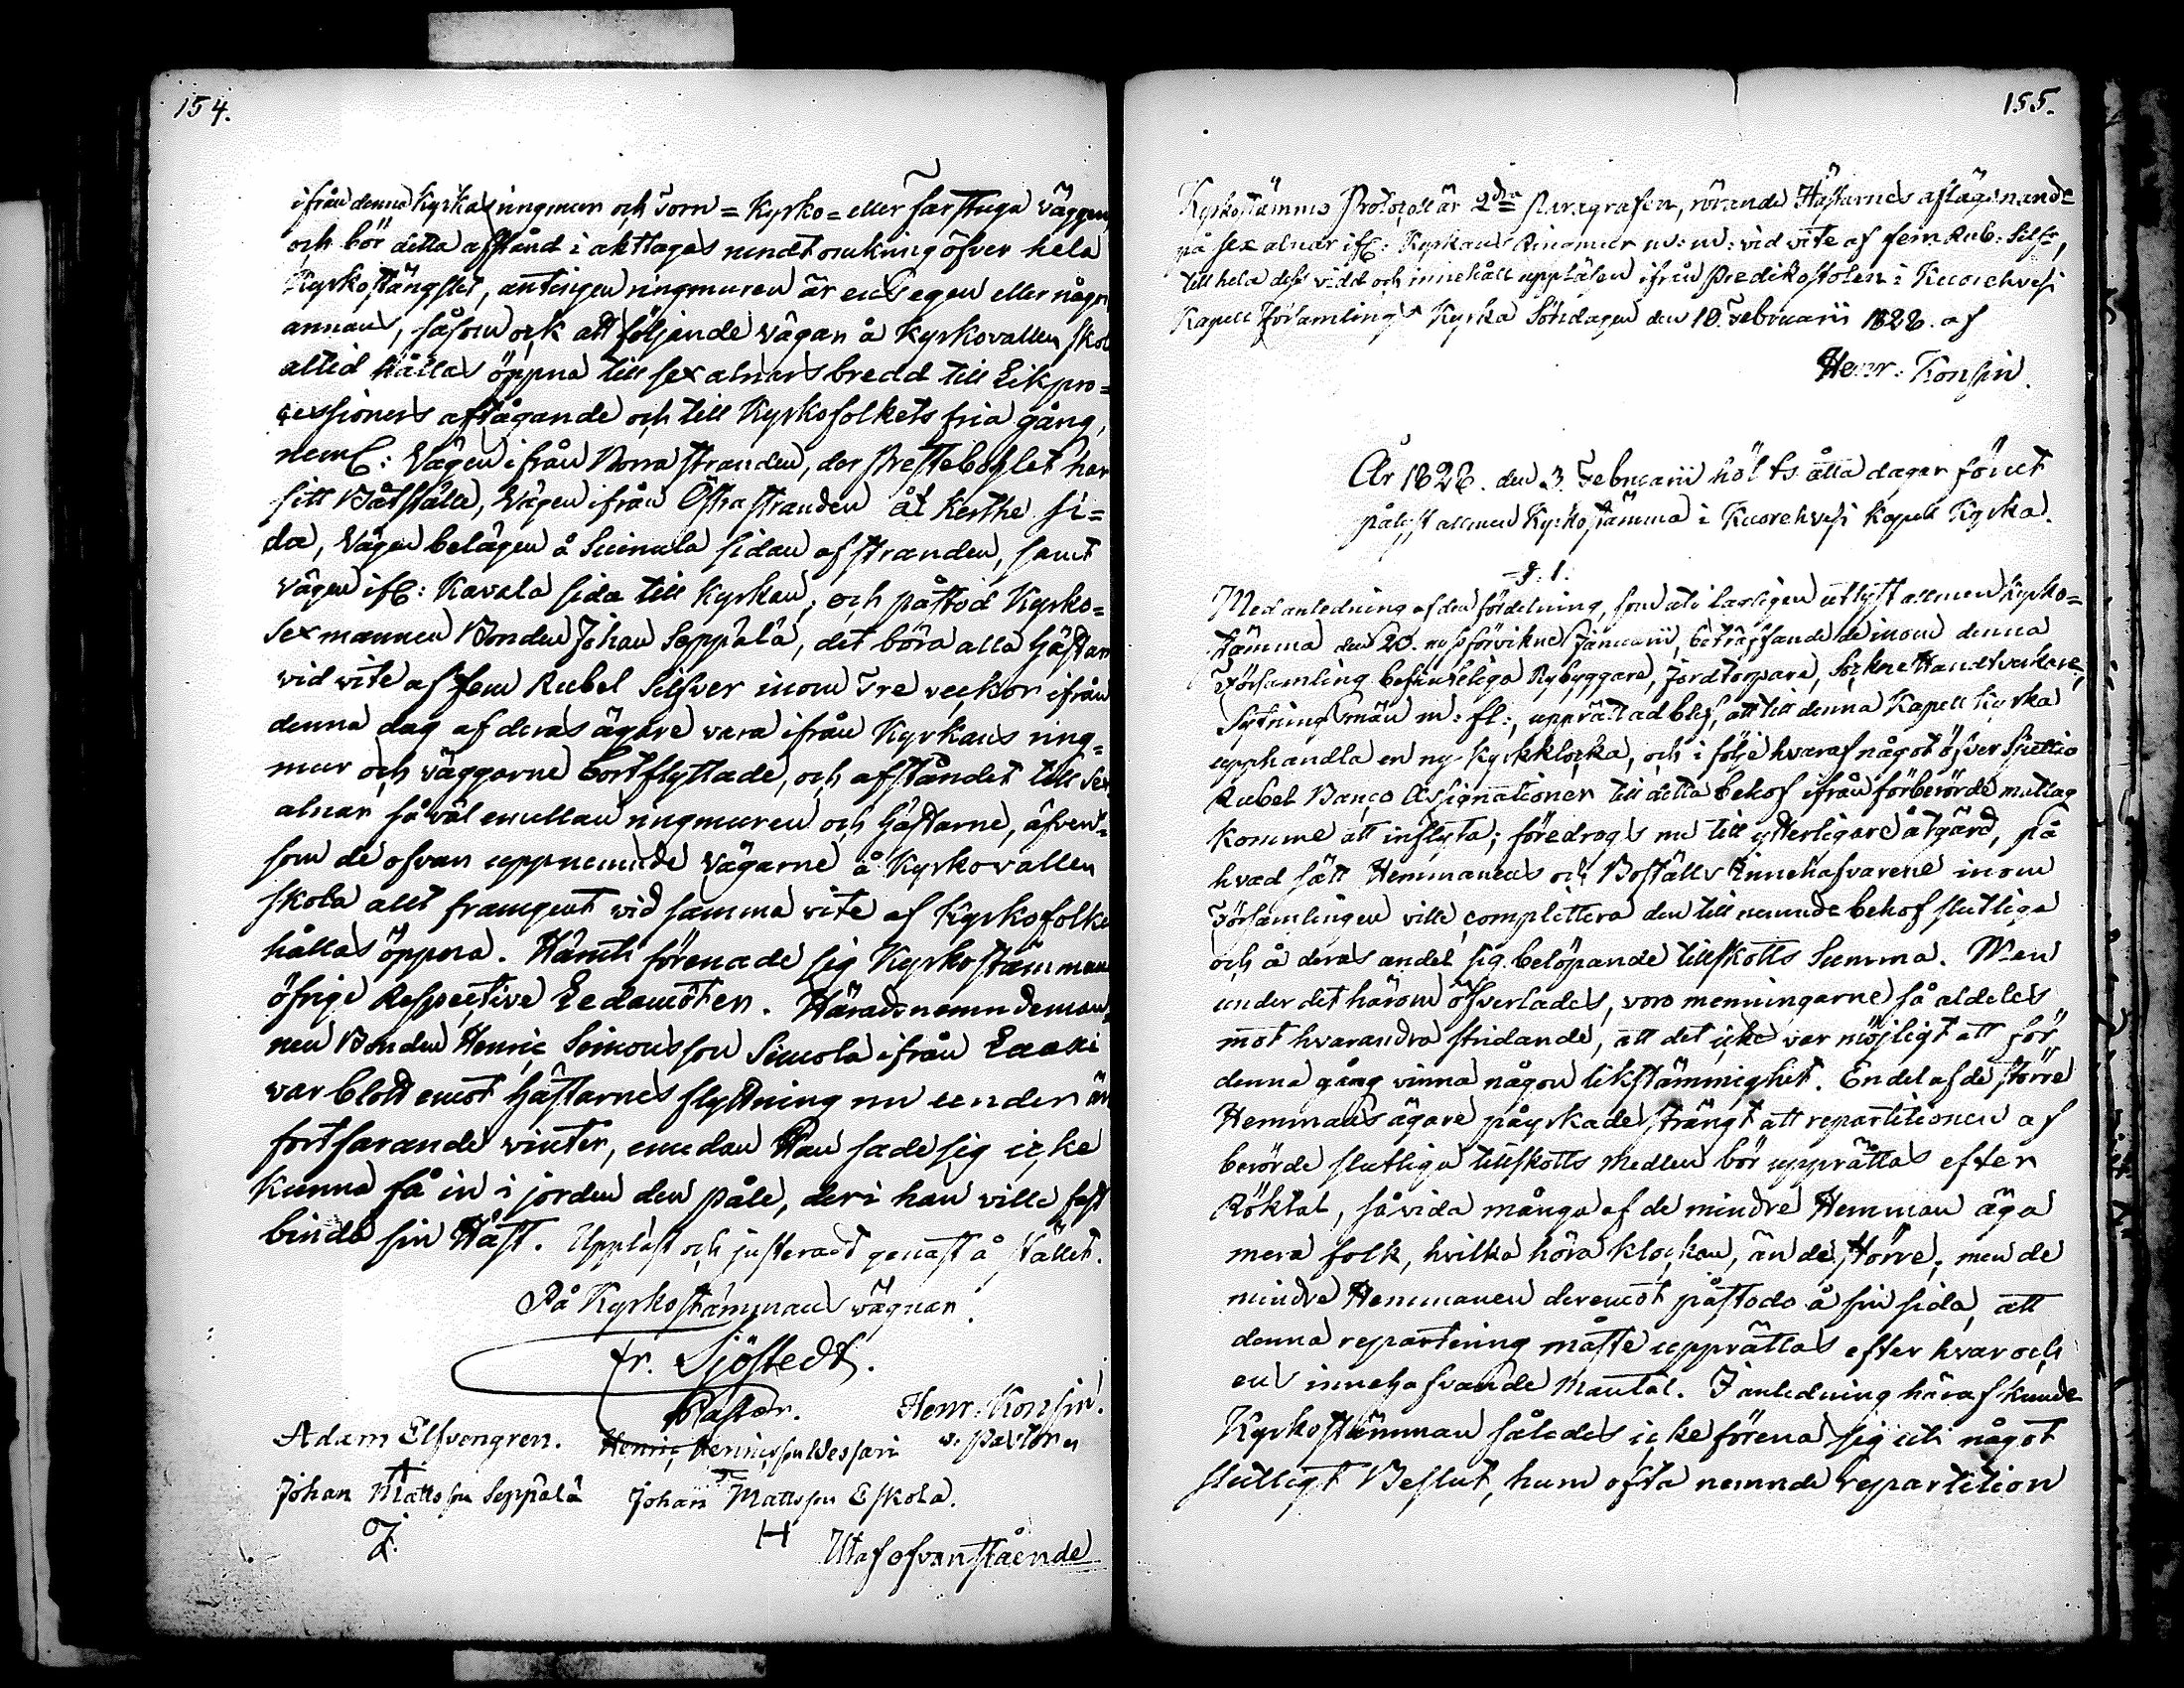 154.
ifrån denna Kyrkas ringmur och Torn= Kyrko= eller farstuga väggen,
och bör detta afstånd i akttagas rundt omkring öfver hela
Kyrkostängslet, antingen ringmuren är ens egen eller någon
annans, såsom ock att följande vägar å Kyrkovallen skol
altid hållas öppna till sex alnars bredd till Likpro=
cessioners aftågande och till Kyrkofolkets fria gång,
neml: Vägen ifrån Norra stranden, der Prestebohlet har
sitt Båtställe, Vägen ifrån Östra stranden åt Kerthe si=
da, Vägen belägen å Suinula sidan af stranden, samt
vägen ifr: Kavala sida till Kyrkan; och påstod Kyrko=
Sexmannen Bonden Johan Seppälä, det böra alla Hästar
vid vite af fem Rubel Silfver inom Tre veckor ifrån
denna dag af deras ägare vara ifrån Kyrkans ring=
mur och väggarne bortflyttade, och afståndet till Sex
alnar så väl emellan ringmuren och Hästarne, äfven=
som de ofvan uppnemnde vägarne å Kyrkovallen
skola allt framgent vid samma vite af Kyrkofolke
hållas öppna. Härmed förenade sig Kyrkostämmans
öfrige Respective Ledamöter. Häradsnemndeman=
nen Bonden Henric Simonsson Simola ifrån Laasi
var blott emot Hästarnes flyttning nu under nu
fortfarande vinter, emedan Han sade sig icke
kunna få in i jorden den påle, deri han ville fast
binda sin Häst. Uppläst och justeradt genast å Stället.
På Kyrkostämmans vägnar
Fr. Sjöstedt.
Pastor.
Henr. Konsin.
v. pastor
Adam Elfvengren.
Henric Henricsson Wessari
Johan Mattsson Seppälä
Johan Mattsson Eskola.
H
Utaf ofvanstående
155.
Kyrkostämmo Protocoll är 2dra Paragrafen, rörande Hästarnes aflägsnande
på sex alnar ifr: Kyrkans Ringmur m: m: vid vite af fem Rub: Silfr,
till hela dess vidd och innehåll uppläsen ifrån Predikostolen i Kuorehvesi
Kapell Församlings Kyrka Söndagen den 10. Februarii 1828. af
Henr. Konsin.
År 1828. den 3. Februarii hölts åtta dagar förut
pålyst allmen Kyrkostämma i Kuorehvesi Kapell Kyrka.
§. 1.
Med anledning af den fördelning, som uti lagligen utlyst allmen Kyrko=
stämma den 20. nyssförvikne Januarii, beträffande de inom denna
Församling befinteliga Nybyggare, Jordtorpare, Sockne Handtverkare,
Sytningsmän m: fl:, upprättad blef, att till denna Kapell Kyrka
upphandla en ny Kyrkklocka, och i följe hvaraf något öfver Sjuttio
Rubel Banco Assignationer till detta behof ifrån förberörde mattlag
komme att inflyta; föredrogs nu till ytterligare åtgärd, på
hvad sätt Hemmanens och Boställs Innehafvarene inom
Församlingen ville complettera den till nemnde behof slutliga
och å deras andel sig belöpande tillskotts Summa. Men
under det härom öfverlades, voro meningarne så aldeles
mot hvarandra stridande, att det icke var möjligt att för
denna gång vinna någon likstämmighet. En del af de större
Hemmans ägare påyrkade strängt att repartitionen af
berörde slutliga tillskotts Medlen bör upprättas efter
Röktal, såvida många af de mindre Hemman äga
mera folk, hvilka höra klockan, än de större; men de
mindre Hemmanen deremot påstodo å sin sida, att
denna repartering måtte upprättas efter hvar och
ens innehafvande Mantal. I anledning häraf kunde
Kyrkostämman således icke förena sig uti något
slutligt Beslut, hum ofta nemnde repartition